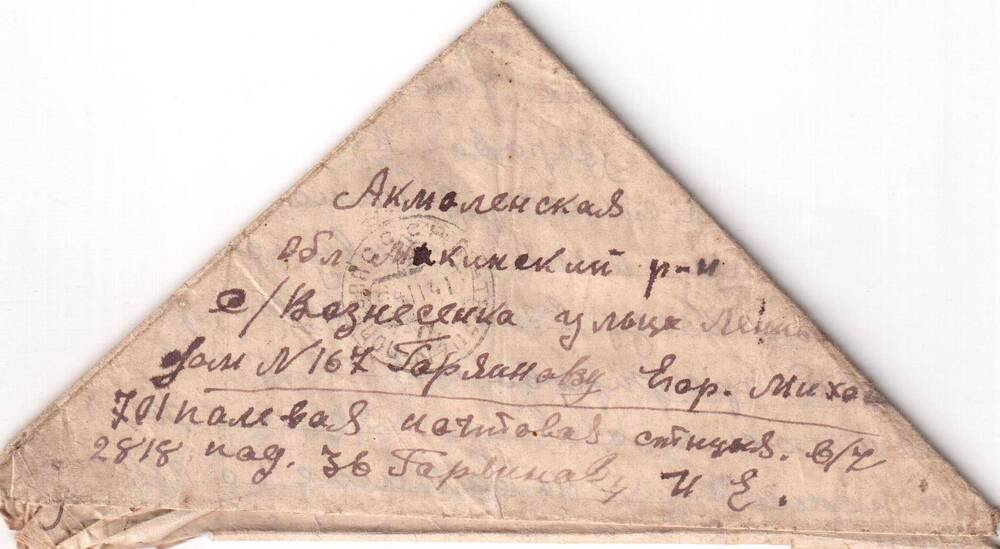 Акмоленская
обл Макинский р-н
с/Вознесенка улыца Ленин
дом N 167 Горяинову Егор. Михо
701 полевая почтовая стнцыя. в/ч
2818 под. 36 Горяинову И Е.